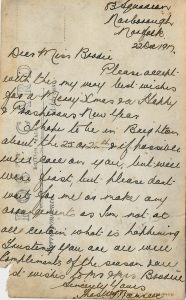 B Squadron
Narborough
Norfolk
22 Dec 1917
Dear Miss Boodie
Please accept
with this my very best wishes
for a Merry Xmas & a Happy
& Prosperous New Year
I hope to be in Brighton
about the 25 or 26th & if possible
will call on you, but will
wire first, but please don't
wait for me or make any
arrangements as I'm not at
all certain what is happening
Trusting you are are well
Compliments of the season
wishes to Mr & Mrs Boodie
Sincerely Yours